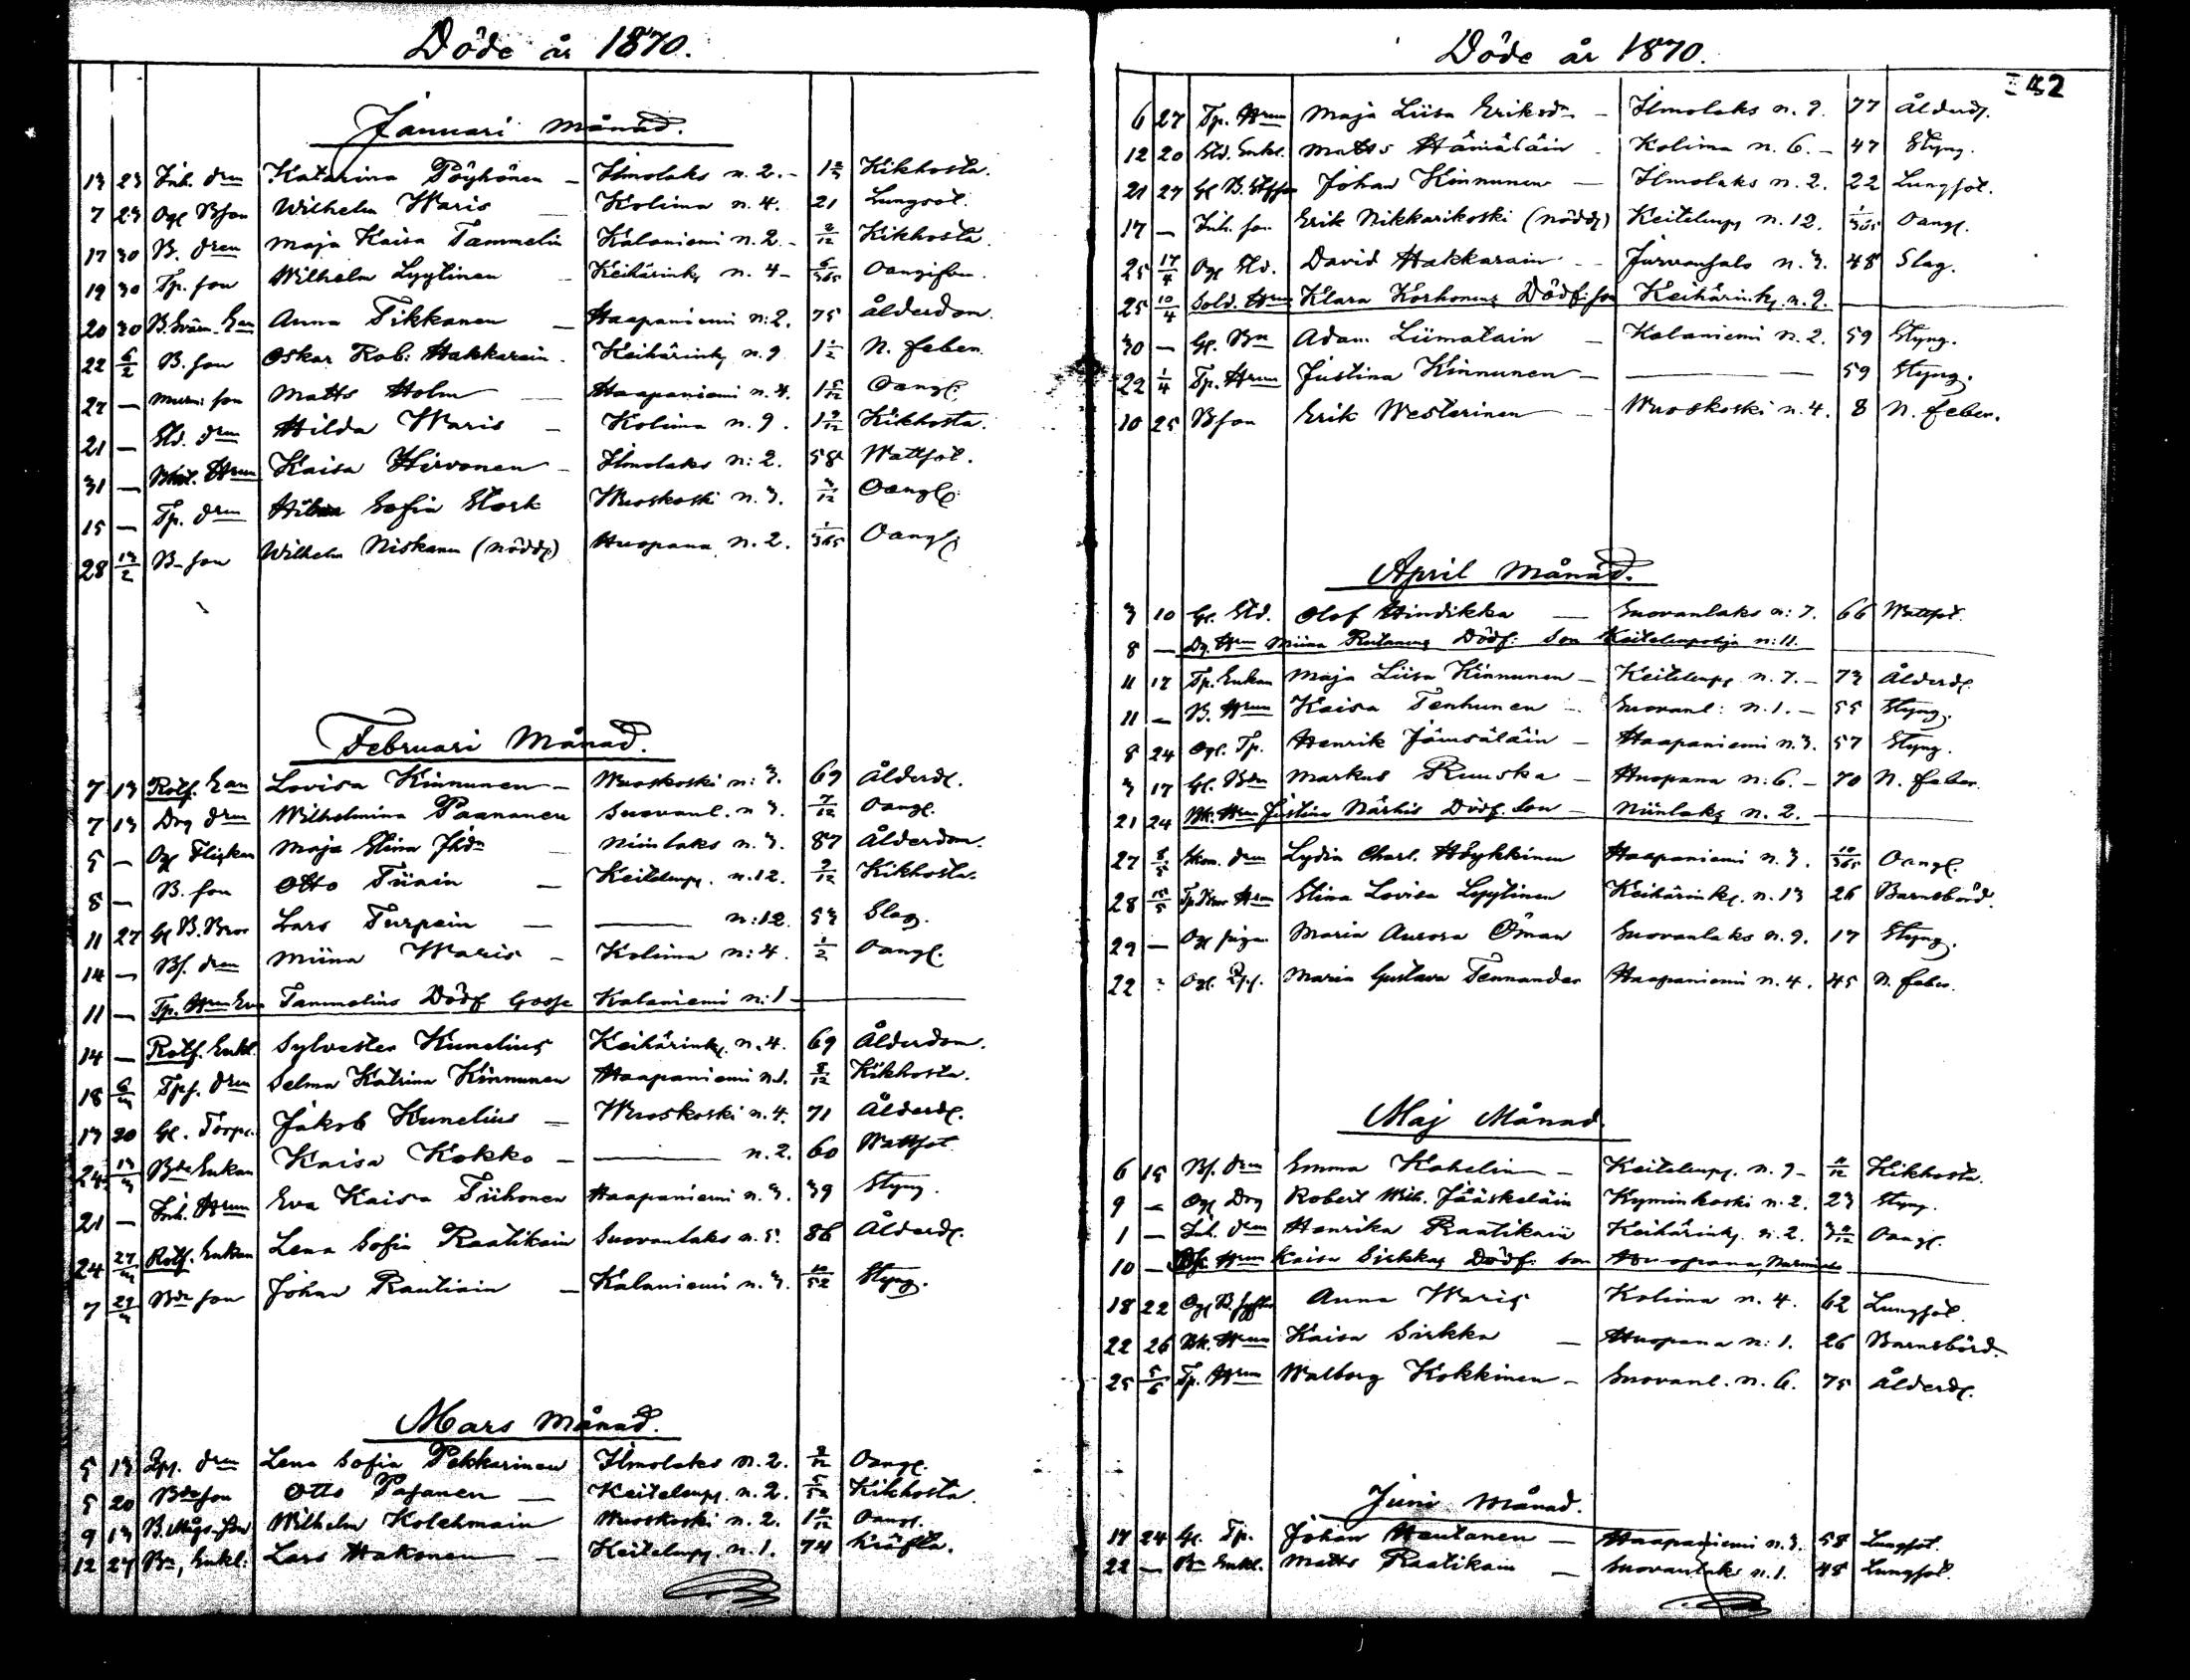 Döde år 1870.
Januari månad.
13 23 Inh. drn Katarina Pöyhönen – Ilmolaks n. 2. – 1 2/3 Kikhosta.
7 23 Ogf Bson Wilhelm Waris — Kolima n. 4. 21 Lungsot.
17 30 B. dren Maja Kaisa Tammelin Kalaniemi n. 2. – 2/12 Kikhosta.
19 30 Tp. son Wilhelm Lyytinen – Keihärinky n. 4 – 6/365 Oangifven.
20 30 Anna Tikkanen — Haapaniemi n: 2. 75 Ålderdom.
22 6/2 B. son Oskar Rob: Hakkarain. Keihärinky n. 9 1 1/2 N. feber.
27 — son Matts Holm — Haapaniemi n. 4. 1 5/12 Oangf.
21 — Std. drn Hilda Waris – Kolima n. 9. 1 9/12 Kikhosta.
31 — Hrun Kaisa Hirvonen – Ilmolaks n: 2. 58 Wattsot.
15 — Tp. drn Sofia Stark Wuoskoski n. 3. 3/12 Oangf.
28 13/2 B–son Wilhelm Niskanen (nöddf) Huopana n. 2. 1/365 Oangf.
Februari Månad.
7 13 Rotf. Ean Lovisa Kinnunen – Wuoskoski n: 3. 69 Ålderd.
7 13 Drg drn Wilhelmina Paananen Suovanl. n 3. 7/12 Oangf.
5 — Ogf Flickan Maja Stina Jhdr — Niinlaks n. 3. 87 Ålderdom.
8 — B. son Otto Tiiain — Keitelepy. n. 12. 9/12 Kikhosta.
11 27 Gf B. Bror Lars Turpein — —— n: 12. 53 Slag.
14 — Bf. drn Miina Waris – Kolima n: 4. 1/2 Oangf.
11 — Tp. Hrun Eva Tammelins Dödf Gosse Kalaniemi n: 1 ——
14 — Rotf. Enkl. Sylvester Kunelius Keihärinky. n. 4. 69 Ålderdom.
18 Tpf. drn Selma Katrina Kinnunen Haapaniemi n. 1. 8/12 Kikhosta.
17 20 Gf. Torpr. Jakob Kunelius – Wuoskoski n. 4. 71 Ålderd.
24 Bde Enkan Kaisa Kokko – —— n. 2. 60 Wattsot
21 — Inh. Hrun Eva Kaisa Tiihonen Haapaniemi n. 3. 39 Styng.
24 Rotf. Enkan Lena Sofia Raatikain Suovanlaks n. 5. 86 Ålderd.
7 Bdr son Johan Rautiain – Kalaniemi n. 3. 10/52 Styng.
Mars Månad.
5 13 drn Lena Sofia Pekkarinen Ilmolaks n. 2. 2/12 Oangf.
5 20 Bde son Otto Pasanen — Keitelepy. n. 2. 5/52 Kikhosta.
9 13 B. Mågs-son Wilhelm Kolehmain Wuoskoski n. 2. 1 10/12 Oangf.
12 27 Bn, Enkl. Lars Hakonen — Keitelepy. n. 1. 74 Kräfta.
Döde år 1870.
42
6 27 Tp. Hrun Maja Liisa Eriksdr – Ilmolaks n. 9. 77 Ålderd.
12 20 Std. Enkl. Matts Hämäläin – Kolima n. 6. – 47 Styng.
21 27 Gf B. Johan Kinnunen — Ilmolaks n. 2. 22 Lungsot.
17 — Inh. son Erik Nikkarikoski (nöddf) Keitelepy n. 12. 1/365 Oangf.
25 17/4 Ogf Std. David Hakkarain – – Jurvansalo n. 3. 48 Slag.
25 10/4 Sold. Hrun Klara Korhonens Dödf: son Keihärinky. n. 9. ——
30 — Gf. Bn Adam Liimatain — Kalaniemi n. 2. 59 Styng.
22 1/4 Tp. Hrun Justina Kinnunen – —— 59 Styng.
10 25 B son Erik Westerinen – Wuoskoski n. 4. 8 N. feber.
April Månad.
3 10 Gf. Std. Olof Hindikka — Suovanlaks n: 7. 66 Wattsot.
8 — Dg. Hrun Miina Rutanens Dödf: Son Keitelenpohja n: 11.
11 17 Tp. Enkan Maja Liisa Kinnunen – Keitelepy n. 7. – 73 Ålderd.
11 — B. Hrun Kaisa Tenhunen – Suovanl: n. 1. – 55 Styng.
8 24 Ogf. Tp. Henrik Jämsäläin – Haapaniemi n. 3. 57 Styng.
3 17 Gf. Bdn Markus Ruuska – Huopana n: 6. – 70 N. feber.
21 24 Hrun Justina Närhis Dödf. Son – Niinlaks n. 2. ——
27 8/5 drn Lydia Charl. Häykkinen Haapaniemi n. 3. 10/365 Oangf.
28 15/5 Hrun Stina Lovisa Lyytinen Keihärinky. n. 13 26 Barnsbörd.
29 — Ogf piga Maria Aurora Öman Suovanlaks n. 9. 17 Styng.
22 Ogf. Maria Gustava Tennander Haapaniemi n. 4. 45 N. feber.
Maj Månad.
6 15 Bf. drn Emma Kahelin – Keitelepy. n. 9 – 11/12 Kikhosta.
9 – Ogf Drg Robert Wilh. Jääskeläin Kyminkoski n. 2. 23 Styng.
1 — Inh. drn Henrika Raatikain Keihärinky. n. 2. Oangf.
10 — Hrun Kaisa Sirkkas Dödf: Son Huopana
18 22 Ogf B. Anna Waris Kolima n. 4. 62 Lungsot.
22 26 Hrun Kaisa Sirkka — Huopana n: 1. 26 Barnsbörd.
25 5/6 Tp. Hrun Walborg Kokkinen – Suovanl. n. 6. 75 Ålderd.
Juni Månad.
17 24 Gf. Tp. Johan Hautanen – Haapaniemi n. 3. 58 Lungsot.
22 — Bn Enkl. Matts Raatikain — Suovanlaks n. 1. 45 Lungsot.